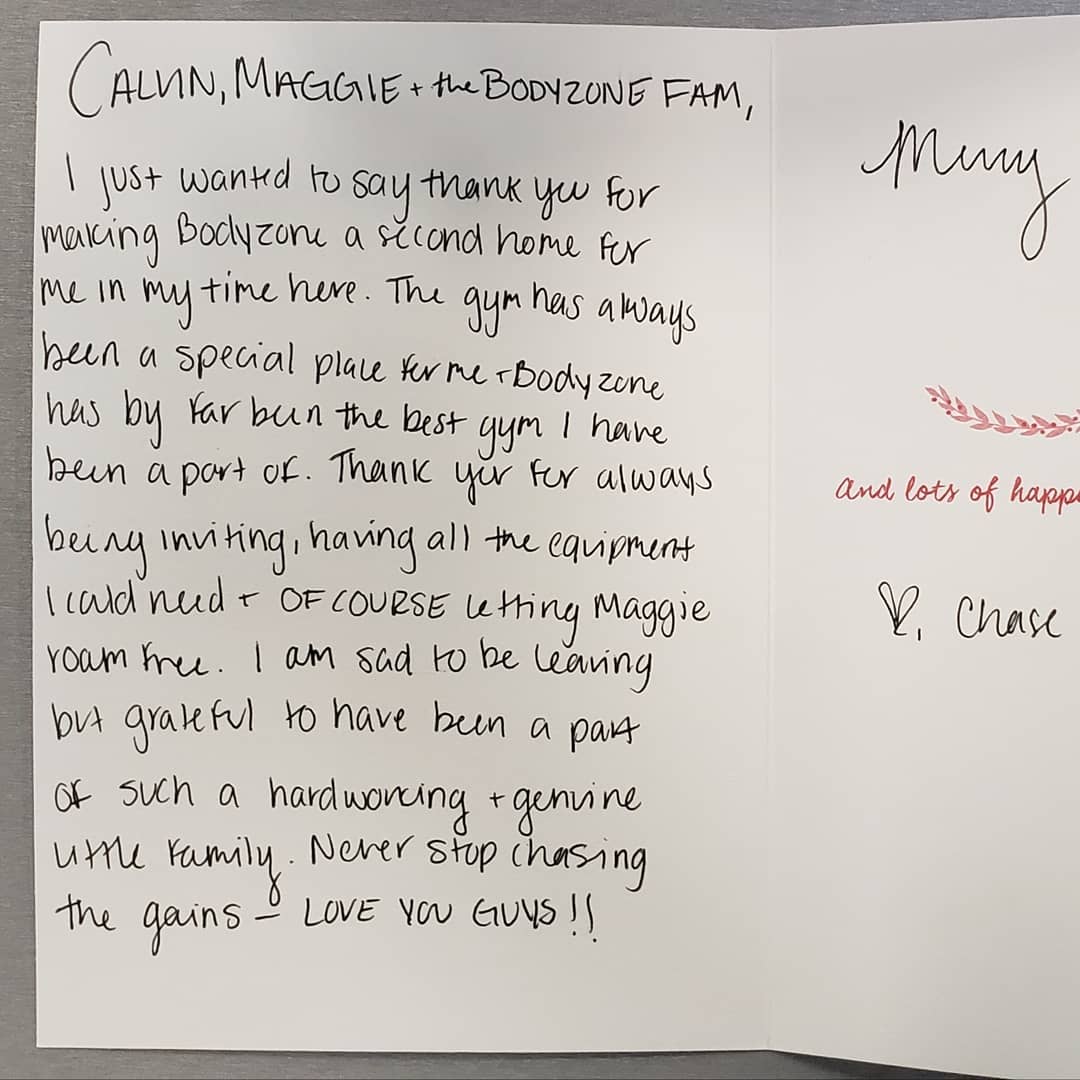 CALVIN, MAGGIE + the BODYZONE FAM,
I just wanted to say thank you for
making Bodyzone a second home for
me in my time here. The gym has always
been a special place for me + Bodyzone
has by far been the best gym I have
been a part of. Thank you for always
being inviting, having all the equipment
I could need + OF COURSE letting Maggie
roam free. I am sad to be leaving
but grateful to have been a part
of such a hardworking + genuine
little family. Never stop chasing
the gains – LOVE YOU GUYS!!
Merry
and lots of happ
♡, Chase